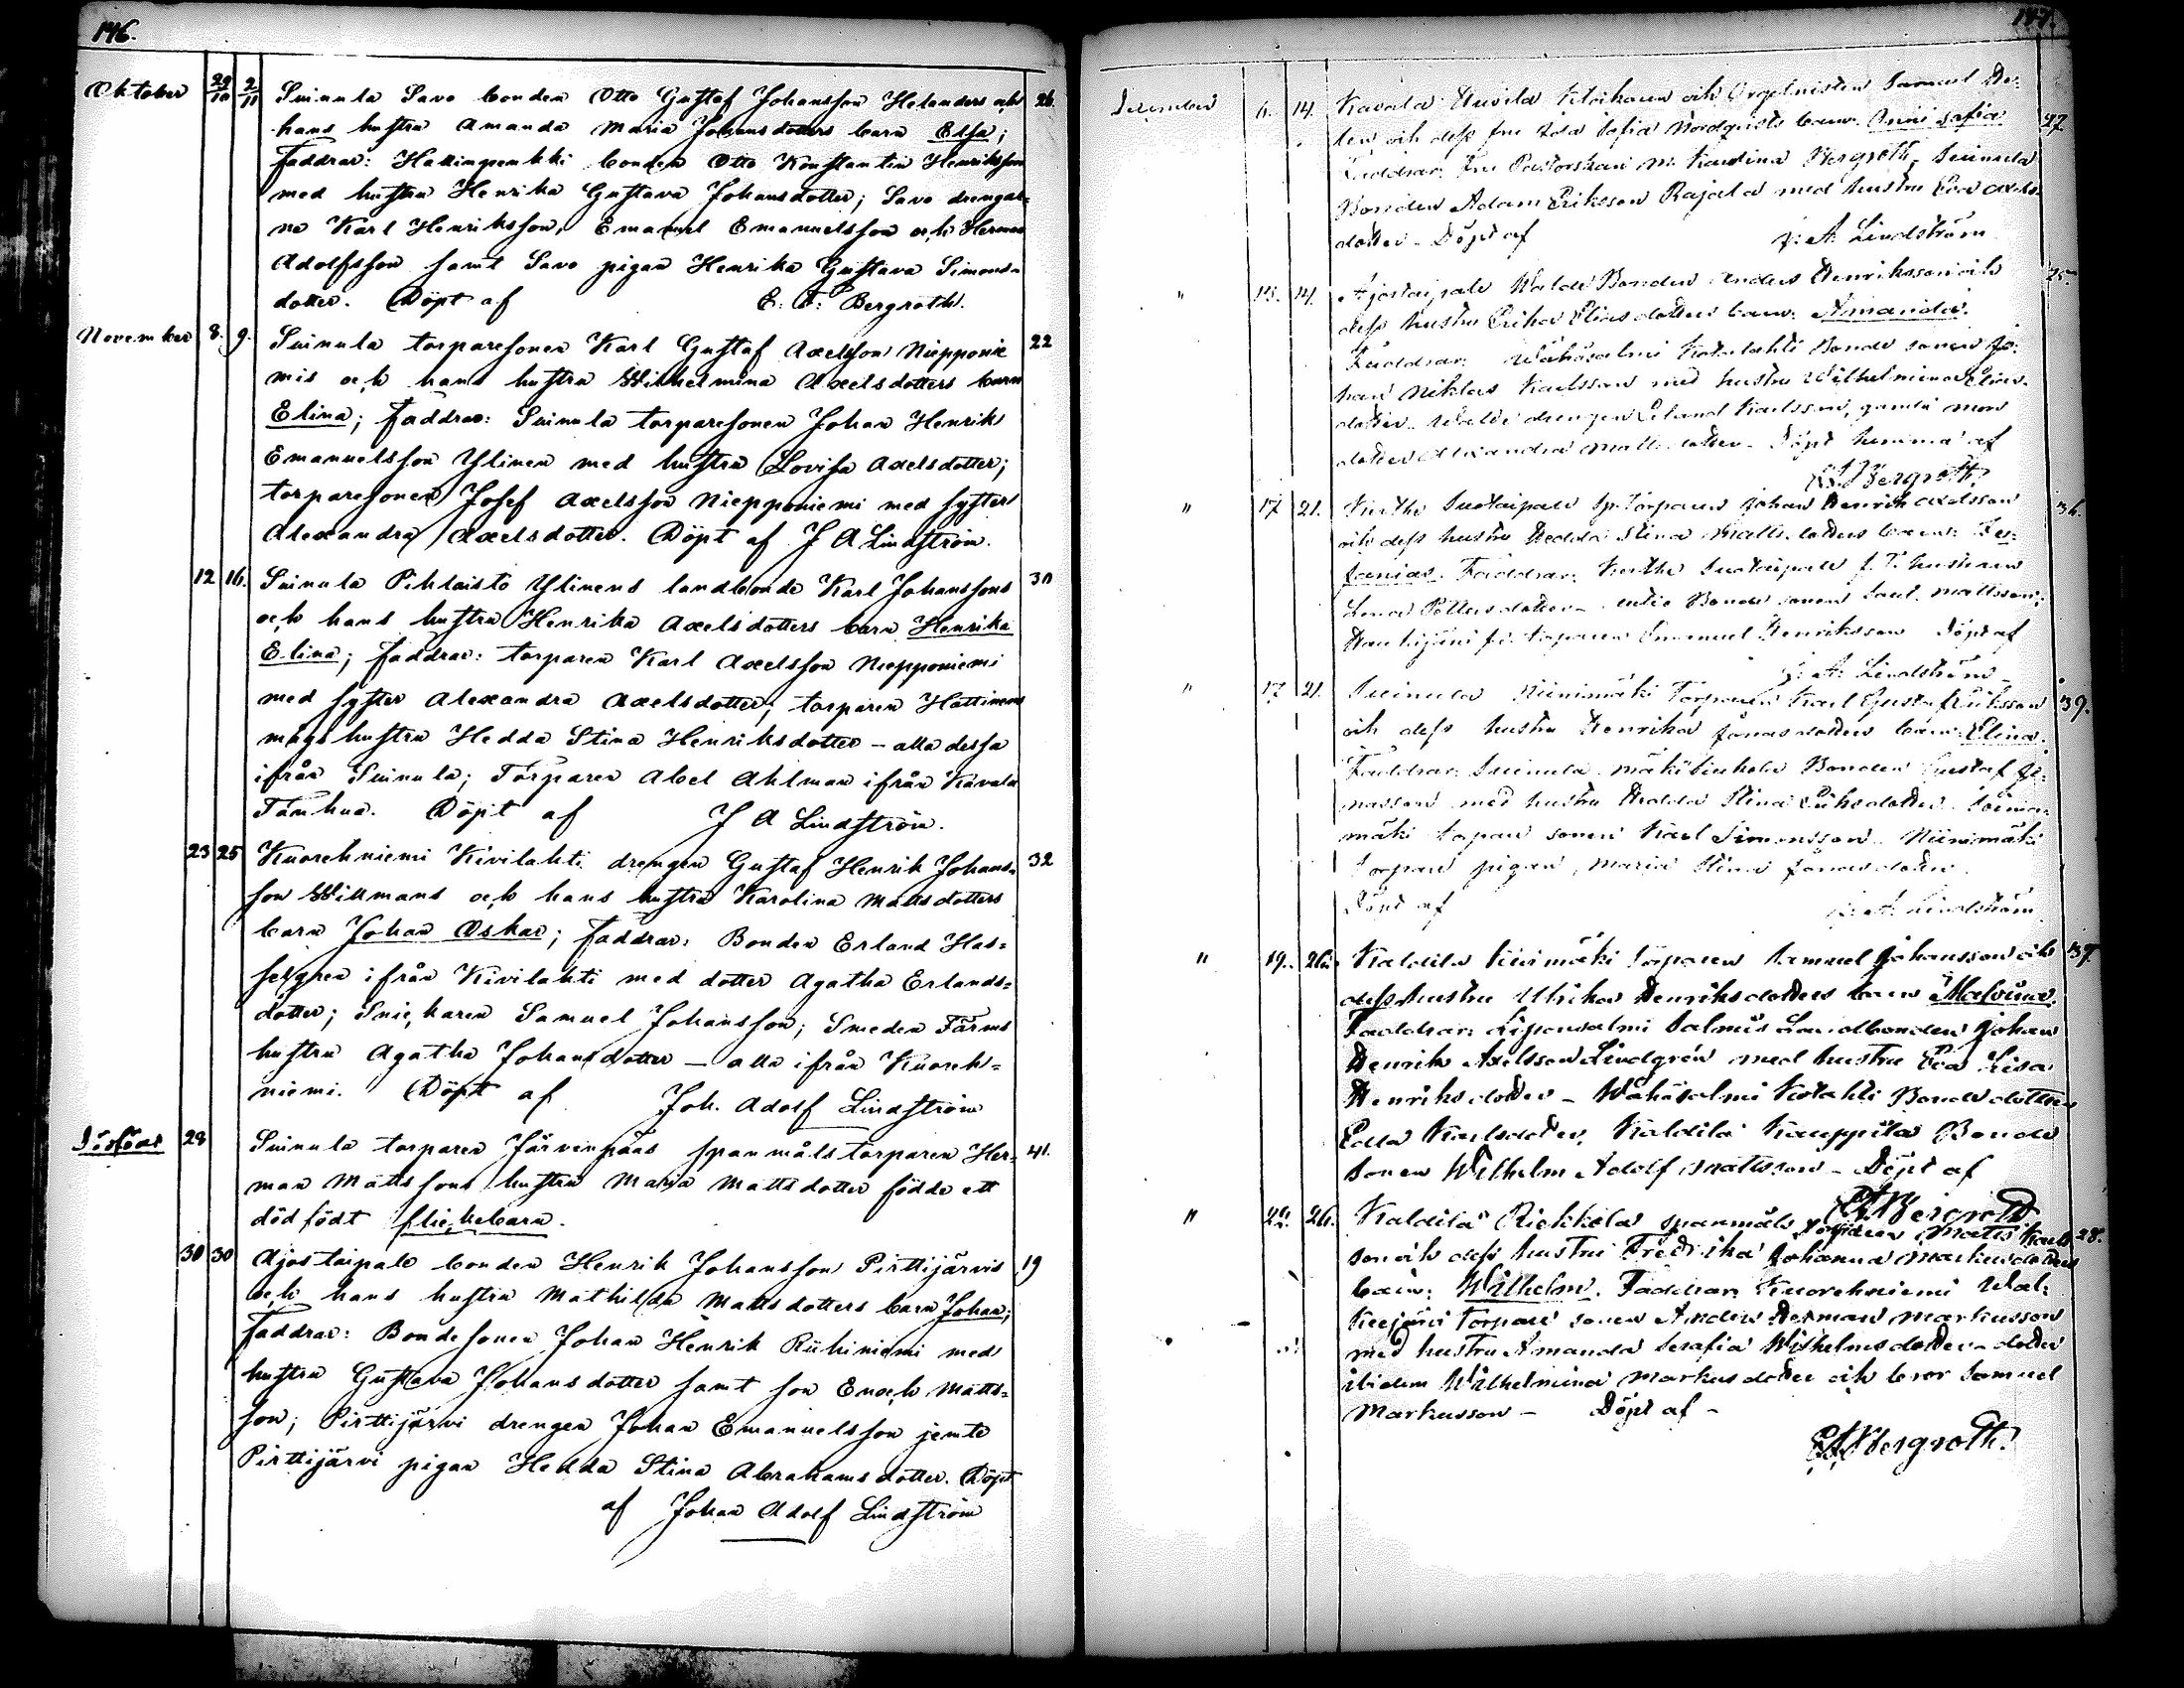 146.
Oktober 29/10 2/11 Suinula Savo bonden Otto Gustaf Johansson Helanders och 26.
hans hustru Amanda Maria Johansdotters barn Elsa;
Faddrar: Hattinpenkki bonden Otto Konstantin Henriksson
med hustru Henrika Gustava Johansdotter; Savo drengar=
ne Karl Henriksson, Emanuel Emanuelsson och Herman
Adolfsson samt Savo pigan Henrika Gustava Simons=
dotter. Döpt af E: A: Bergroth.
November 8. 9. Suinula torparesonen Karl Gustaf Axelsson Niepponie 22
mis och hans hustru Wilhelmina Axelsdotters barn
Elina; Faddrar: Suinula torparesonen Johan Henrik
Emanuelsson Ylinen med hustru Lovisa Axelsdotter;
torparesonen Josef Axelsson Niepponiemi med syster
Alexandra Axelsdotter. Döpt af J A Lindström.
12 16. Suinula Pihlaisto Ylinens landbonde Karl Johanssons 30
och hans hustru Henrika Axelsdotters barn Henrika
Elina; Faddrar: torparen Karl Axelsson Niepponiemi
med syster Alexandra Axelsdotter; torparen Hattinens
mågs hustru Hedda Stina Henriksdotter – alla dessa
ifrån Suinula; Torparen Abel Ahlman ifrån Kavala
Tamhua. Döpt af J A Lindström.
23 25 Kuorehniemi Kivilahti drengen Gustaf Henrik Johans= 32
son Willmans och hans hustru Karolina Mattsdotters
barn Johan Oskar; Faddrar: Bonden Erland Has=
selgren ifrån Kivilahti med dotter Agatha Erlands=
dotter; Snickaren Samuel Johansson; Smeden Färms
hustru Agatha Johansdotter – alla ifrån Kuoreh=
niemi. Döpt af Joh. Adolf Lindström
Dödfödt 28 Suinula torparen Järvenpääs spanmåls torparen Her= 41.
man Mattssons hustru Maria Mattsdotter födde ett
dödfödt flickebarn.
30 30 Ajostaipale bonden Henrik Johansson Pirttijärvis 19
och hans hustru Mathilda Mattsdotters barn Johan;
Faddrar: Bondesonen Johan Henrik Riihiniemi med
hustru Gustava Johansdotter samt son Enoch Matts=
son; Pirttijärvi drengen Johan Emanuelsson jemte
Pirttijärvi pigan Hedda Stina Abrahamsdotter. Döpt
af Johan Adolf Lindström
147.
December 6. 14. Kavala Klockaren och Orgelnisten Samuel
och dess fru Ida Sofia Nordqvists barn: Sofia 27
Faddrar: Fru Pastorskan M. Karolina Bergroth, Suinula
Bonden Adam Eriksson Rajala med hustru Eva Axels
dotter – Döpt af J: A: Lindström
" 13. 14. Ajostaipale Walde Bonden Anders Henriksson och 25.
dess hustru Erika Eliasdotters barn: Amanda.
Faddrar: Wähäsalmi Kotalahti Bonde sonen Jo:
han Niklas Karlsson med hustru Wilhelmina Elias
dotter. Walde drengen Erland Karlsson, gamla mor
dotter Alexandra Mattsdotter – Döpt hemma af
E. A. Bergroth.
" 17 21. Suotaipale Sp. Torparen Johan Henrik Axelsson 36.
och dess hustru Hedda Stina Mattsdotters barn:
Faddrar: Suotaipale hustrun
Lena Pettersdotter – Bonde sonen Mattsson;
torparen Emanuel Henriksson Döpt af
J: A: Lindström –
" 17. 21. Suinula Niinimäki Torparen Karl Gustaf Eriksson 39.
och dess hustru Henrika Jonasdotters barn: Elina.
Faddrar: Suinula Bonden Gustaf Jo:
nasson med hustru Hedda Stina Eriksdotter.
mäki torpare sonen Karl Simonsson. Niinimäki
Torpare pigan, Maria Stina Jonasdotter.
Döpt af J: A: Lindström
" 19. 26. Kaldila Kivimäki Torparen Samuel Johansson och 37.
dess hustru Ulrika Henriksdotters barn Malvina.
Faddrar: Liponsalmi Salmis Landbonden Johan
Henrik Axelsson Lindgrén med hustru Eva Lisa
Henriksdotter – Wähäsalmi Kotalahti Bonde dottren
Edla Karlsdotter, Kaldila Kauppila Bonde
sonen Wilhelm Adolf Mattsson – Döpt af
E A Bergroth
" 26. Kaldila Riekkola spanmåls Torparen Matts Karls 28.
son och dess hustru Fredrika Johanna Markusdotters
barn: Wilhelm. Faddrar: Kuorehniemi Wal:
keejärvi Torpare sonen Anders Herman Markusson
med hustru Amanda Serafia Wilhelmsdotter – dotter
ibidem Wilhelmina Markusdotter och bror Samuel
Markusson – Döpt af –
E A Bergroth.